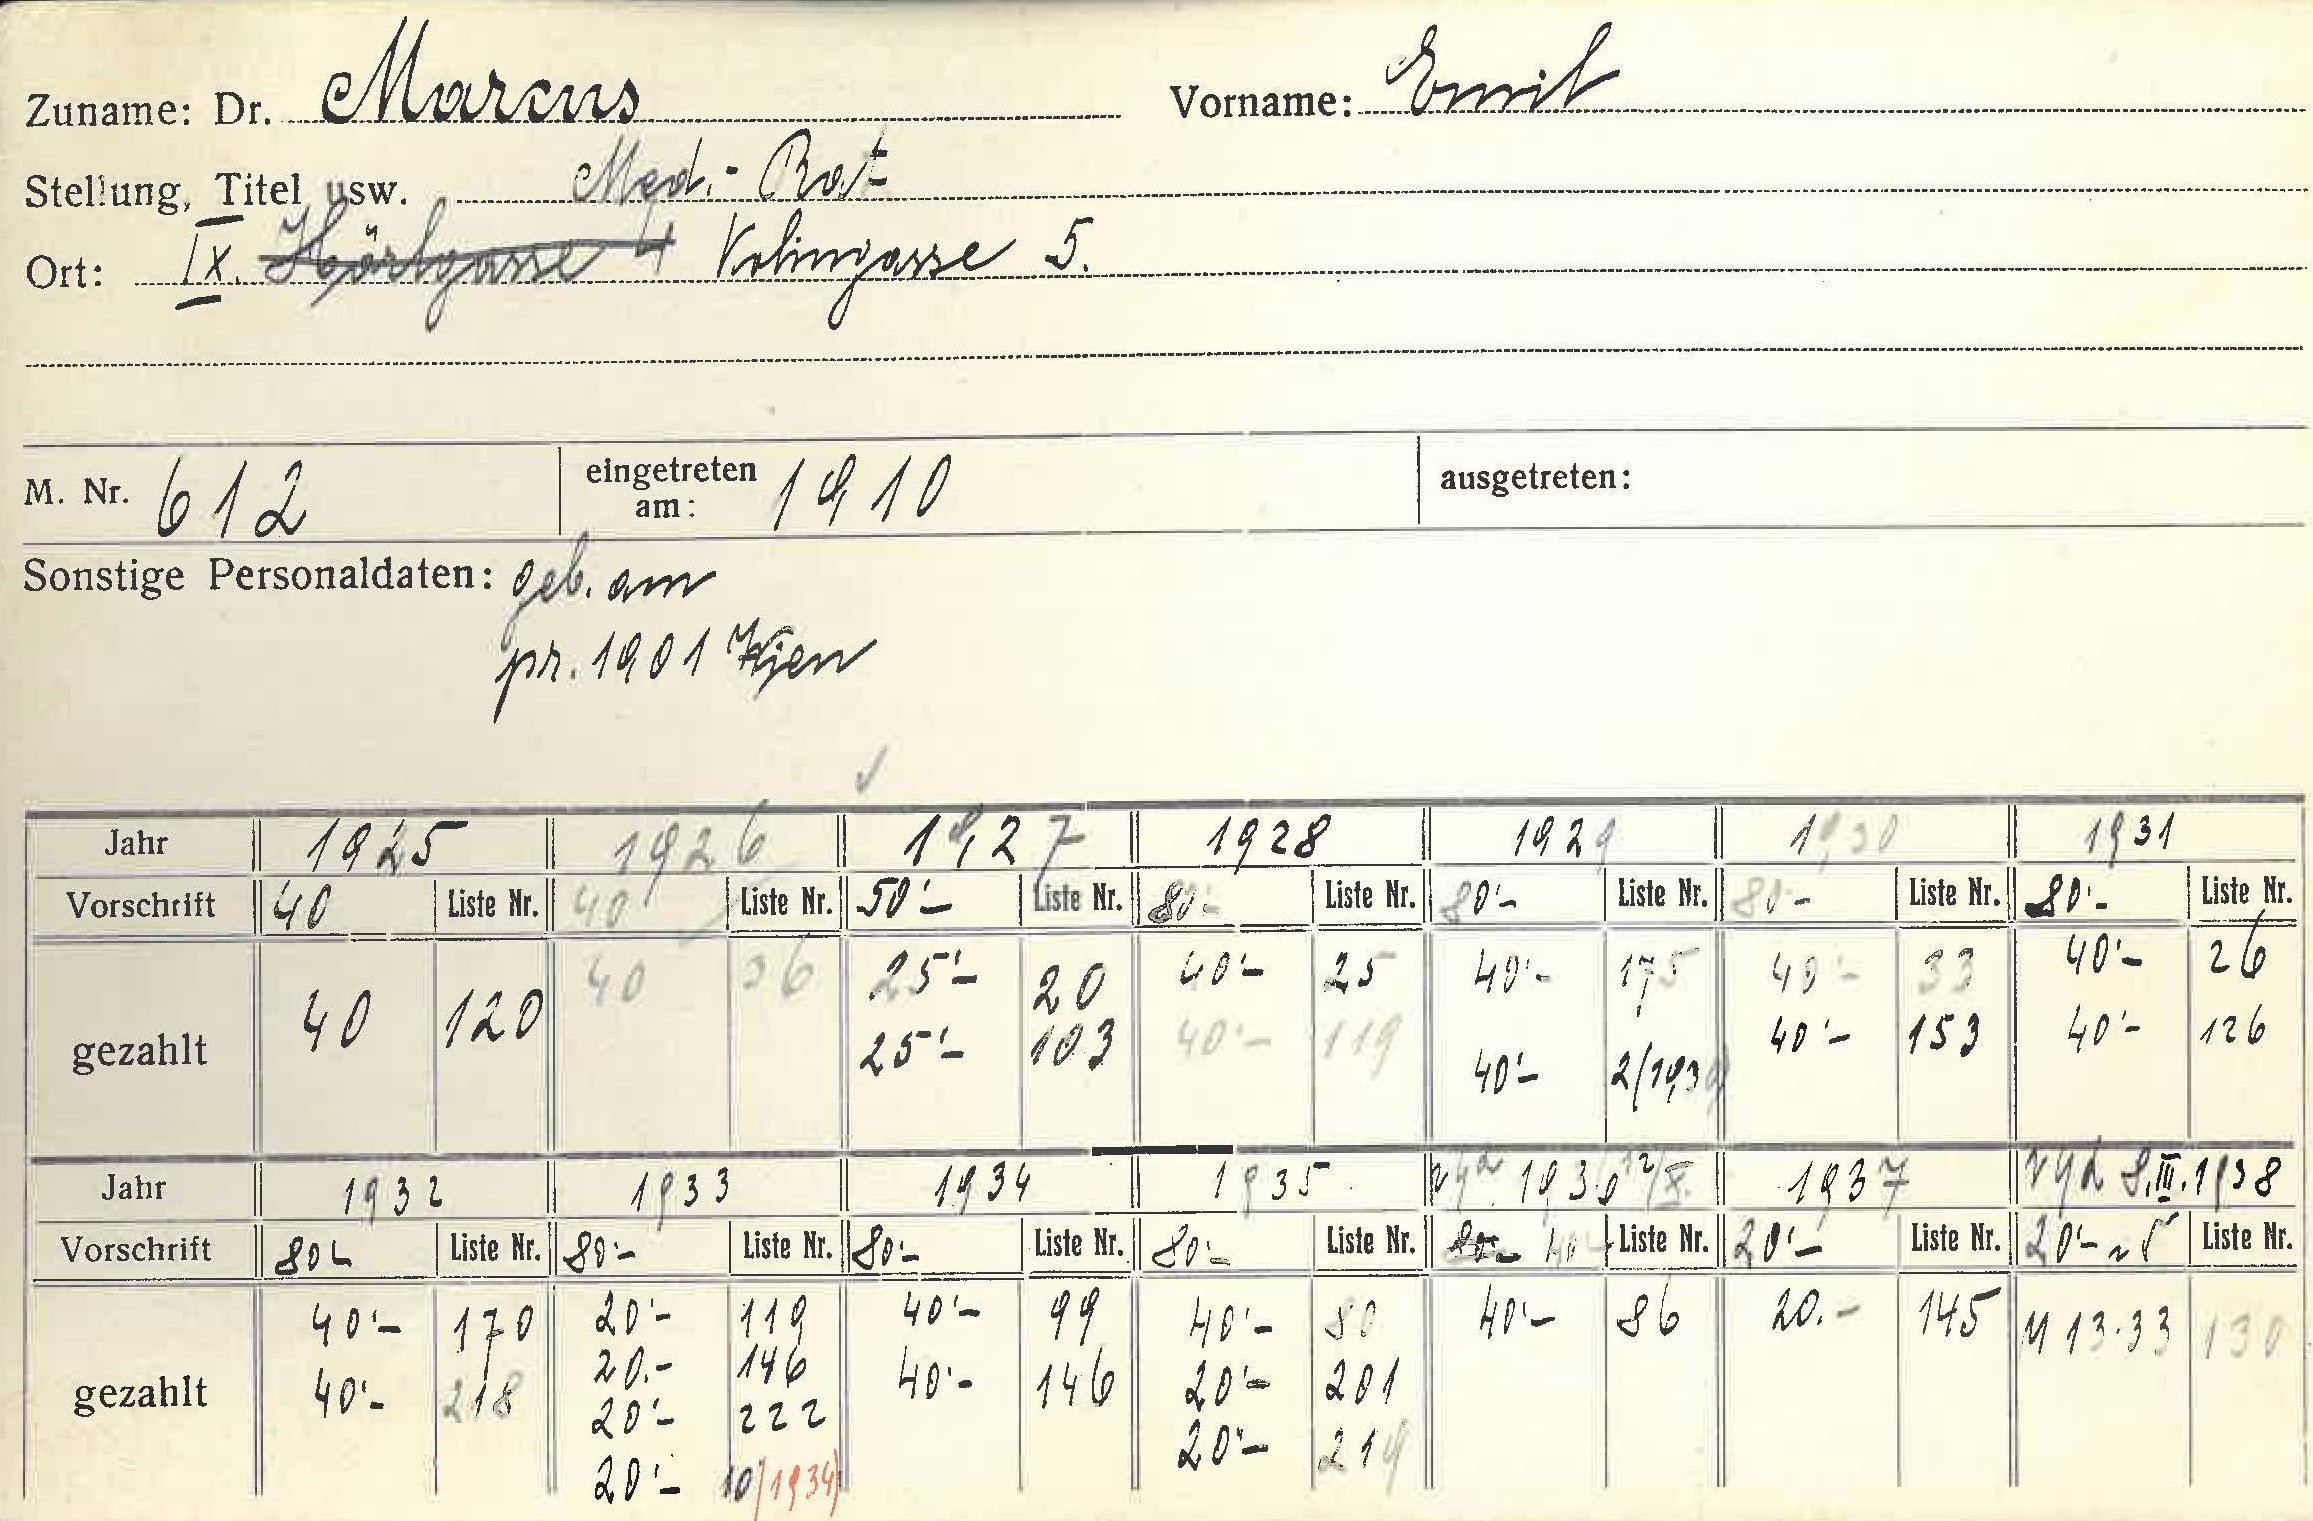 Zuname: Dr. Marcus Vorname: Emil
Stellung, Titel usw. Med.-Rat
Ort: IX. Hörlgasse 4 Kolingasse 5.
M. Nr. 612 eingetreten am: 1910 ausgetreten:
Sonstige Personaldaten: geb. am
pr. 1901 Wien
Jahr 1925 1926 1927 1928 1929 1930 1931
Vorschrift 40 Liste Nr. 40 Liste Nr. 50'- Liste Nr. 80'- Liste Nr. 80'- Liste Nr. 80'- Liste Nr. 80'- Liste Nr.
gezahlt 40 120 40 36 25'- 20 40'- 25 40'- 175 40'- 33 40'- 26
25'- 103 40'- 119 40'- 2/1930 40'- 153 40'- 126
Jahr 1932 1933 1934 1935 1936 1937 8.III.1938
Vorschrift 80'- Liste Nr. 80'- Liste Nr. 80'- Liste Nr. 80'- Liste Nr. 80'- 40'- Liste Nr. 20'- Liste Nr. 20'- Liste Nr.
gezahlt 40'- 170 20'- 119 40'- 99 40'- 80 40'- 86 20.- 145 13.33 130
40'- 218 20.- 146 40'- 146 20'- 201
20'- 222 20'- 219
20'- 10/1934)